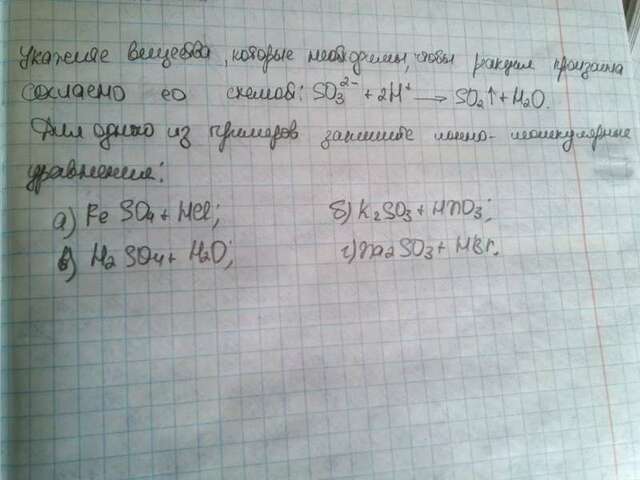 Укажите вещества, которые необходимы, чтобы реакция произошла
согласно со схемой: SO₃²⁻ + 2H⁺ ⟶ SO₂↑ + H₂O.
Для одного из примеров запишите ионно-молекулярные
уравнения:
а) Fe SO₄ + HCl; б) K₂SO₃ + HNO₃;
в) H₂SO₄ + H₂O; г) Na₂SO₃ + HBr.